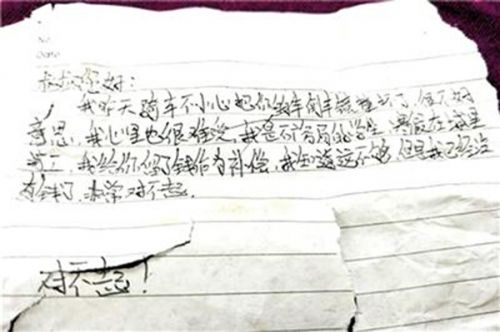 No
Date
叔叔您好：
我昨天骑车不小心把你的车倒车镜撞坏了，很不好
意思，我心里也很难受，我是不富的学生，寒假在这里
打工，我给你留了钱作为补偿，我知道远不够，但我已经没
有钱了，非常对不起。
对不起！